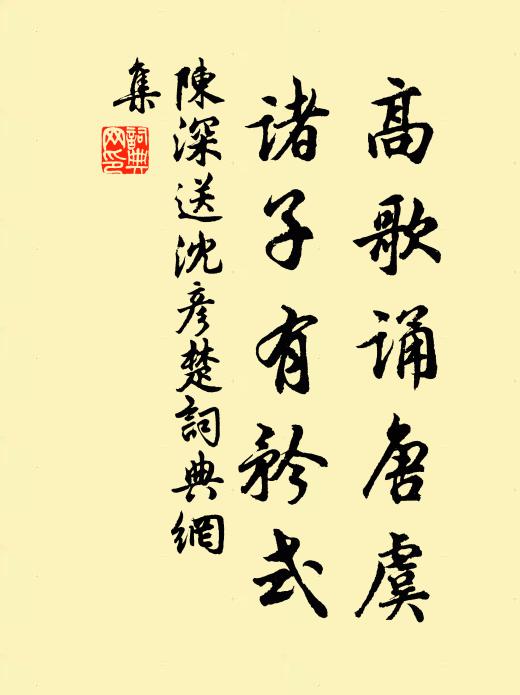 高歌誦唐虞
諸子有矜式
陳深送沈彥楚詞典網
集
詞典
网印